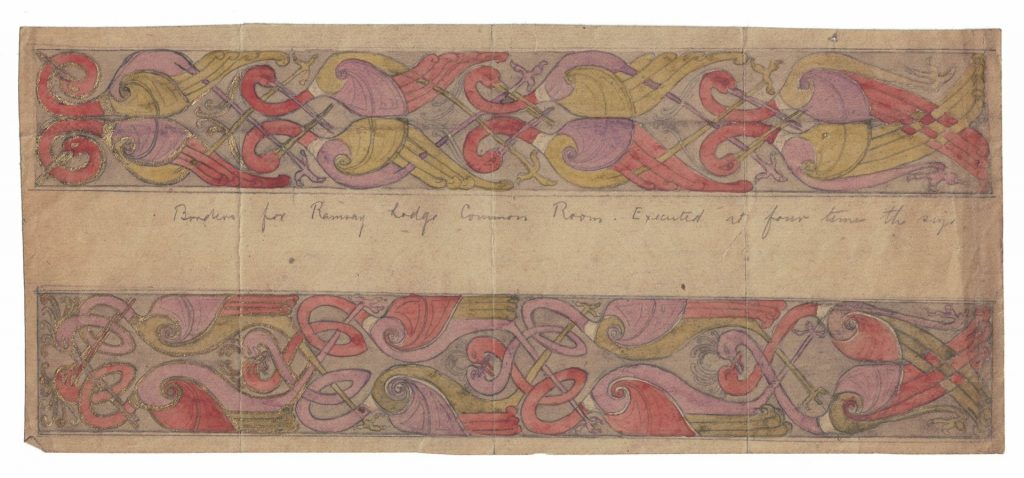 Borders for Ramsay Lodge Common Room. Executed at four times the size